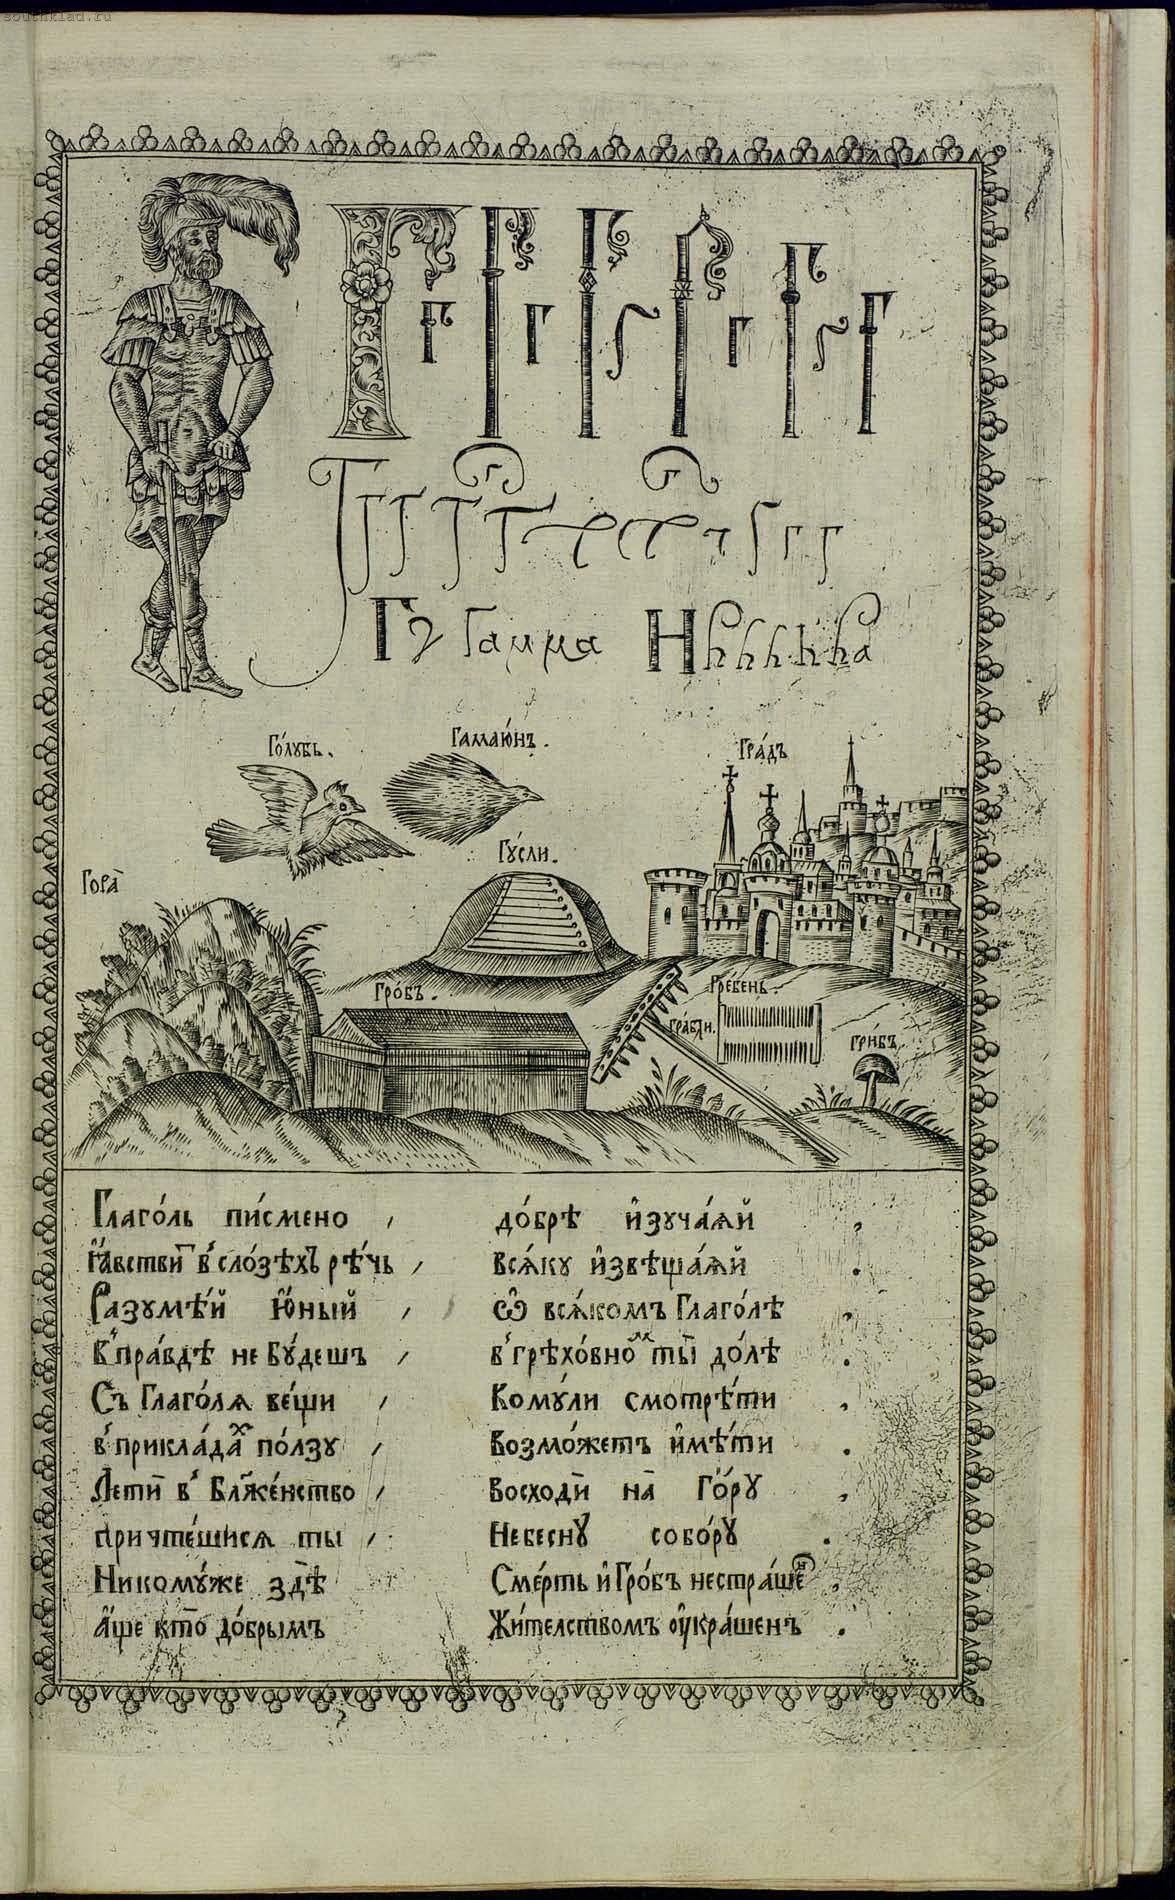 southklad.ru
Г г Гамма Н h h h h ha
Го́лубь. Гамаю́нъ. Гра́дъ
Гу́сли.
Гора̀
Гро́бъ. Гре́бень.
Гра́бли. Гри́бъ.
Глаго́ль пи́смено , до́брѣ и҆зуча́ѧй ,
в̾сло́зѣхъ рѣ́чь , всѧ́ку и҆звѣща́ѧй .
Разумѣ́й ю҆́ный , Ѡ҆ всѧ́комъ Глаго́лѣ ,
в̾пра́вдѣ не бу́дешъ , в̾грѣхо́вно ты̀ до́лѣ .
Съ Глаго́лѧ ве́щи , Кому́ли смотрѣ́ти ,
в̾прикла́дахъ по́лзу , Возмо́жетъ и҆мѣ́ти .
Летѝ в̾ Блаже́нство , Восходѝ на̀ Го́ру ,
причте́шисѧ ты , Небесну собо́ру .
Никому́же здѣ̀ Сме́рть и҆ Гро́бъ нестра́шенъ ,
а҆́ще кто̀ до́брымъ Жи́телствомъ оу҆кра́шенъ .